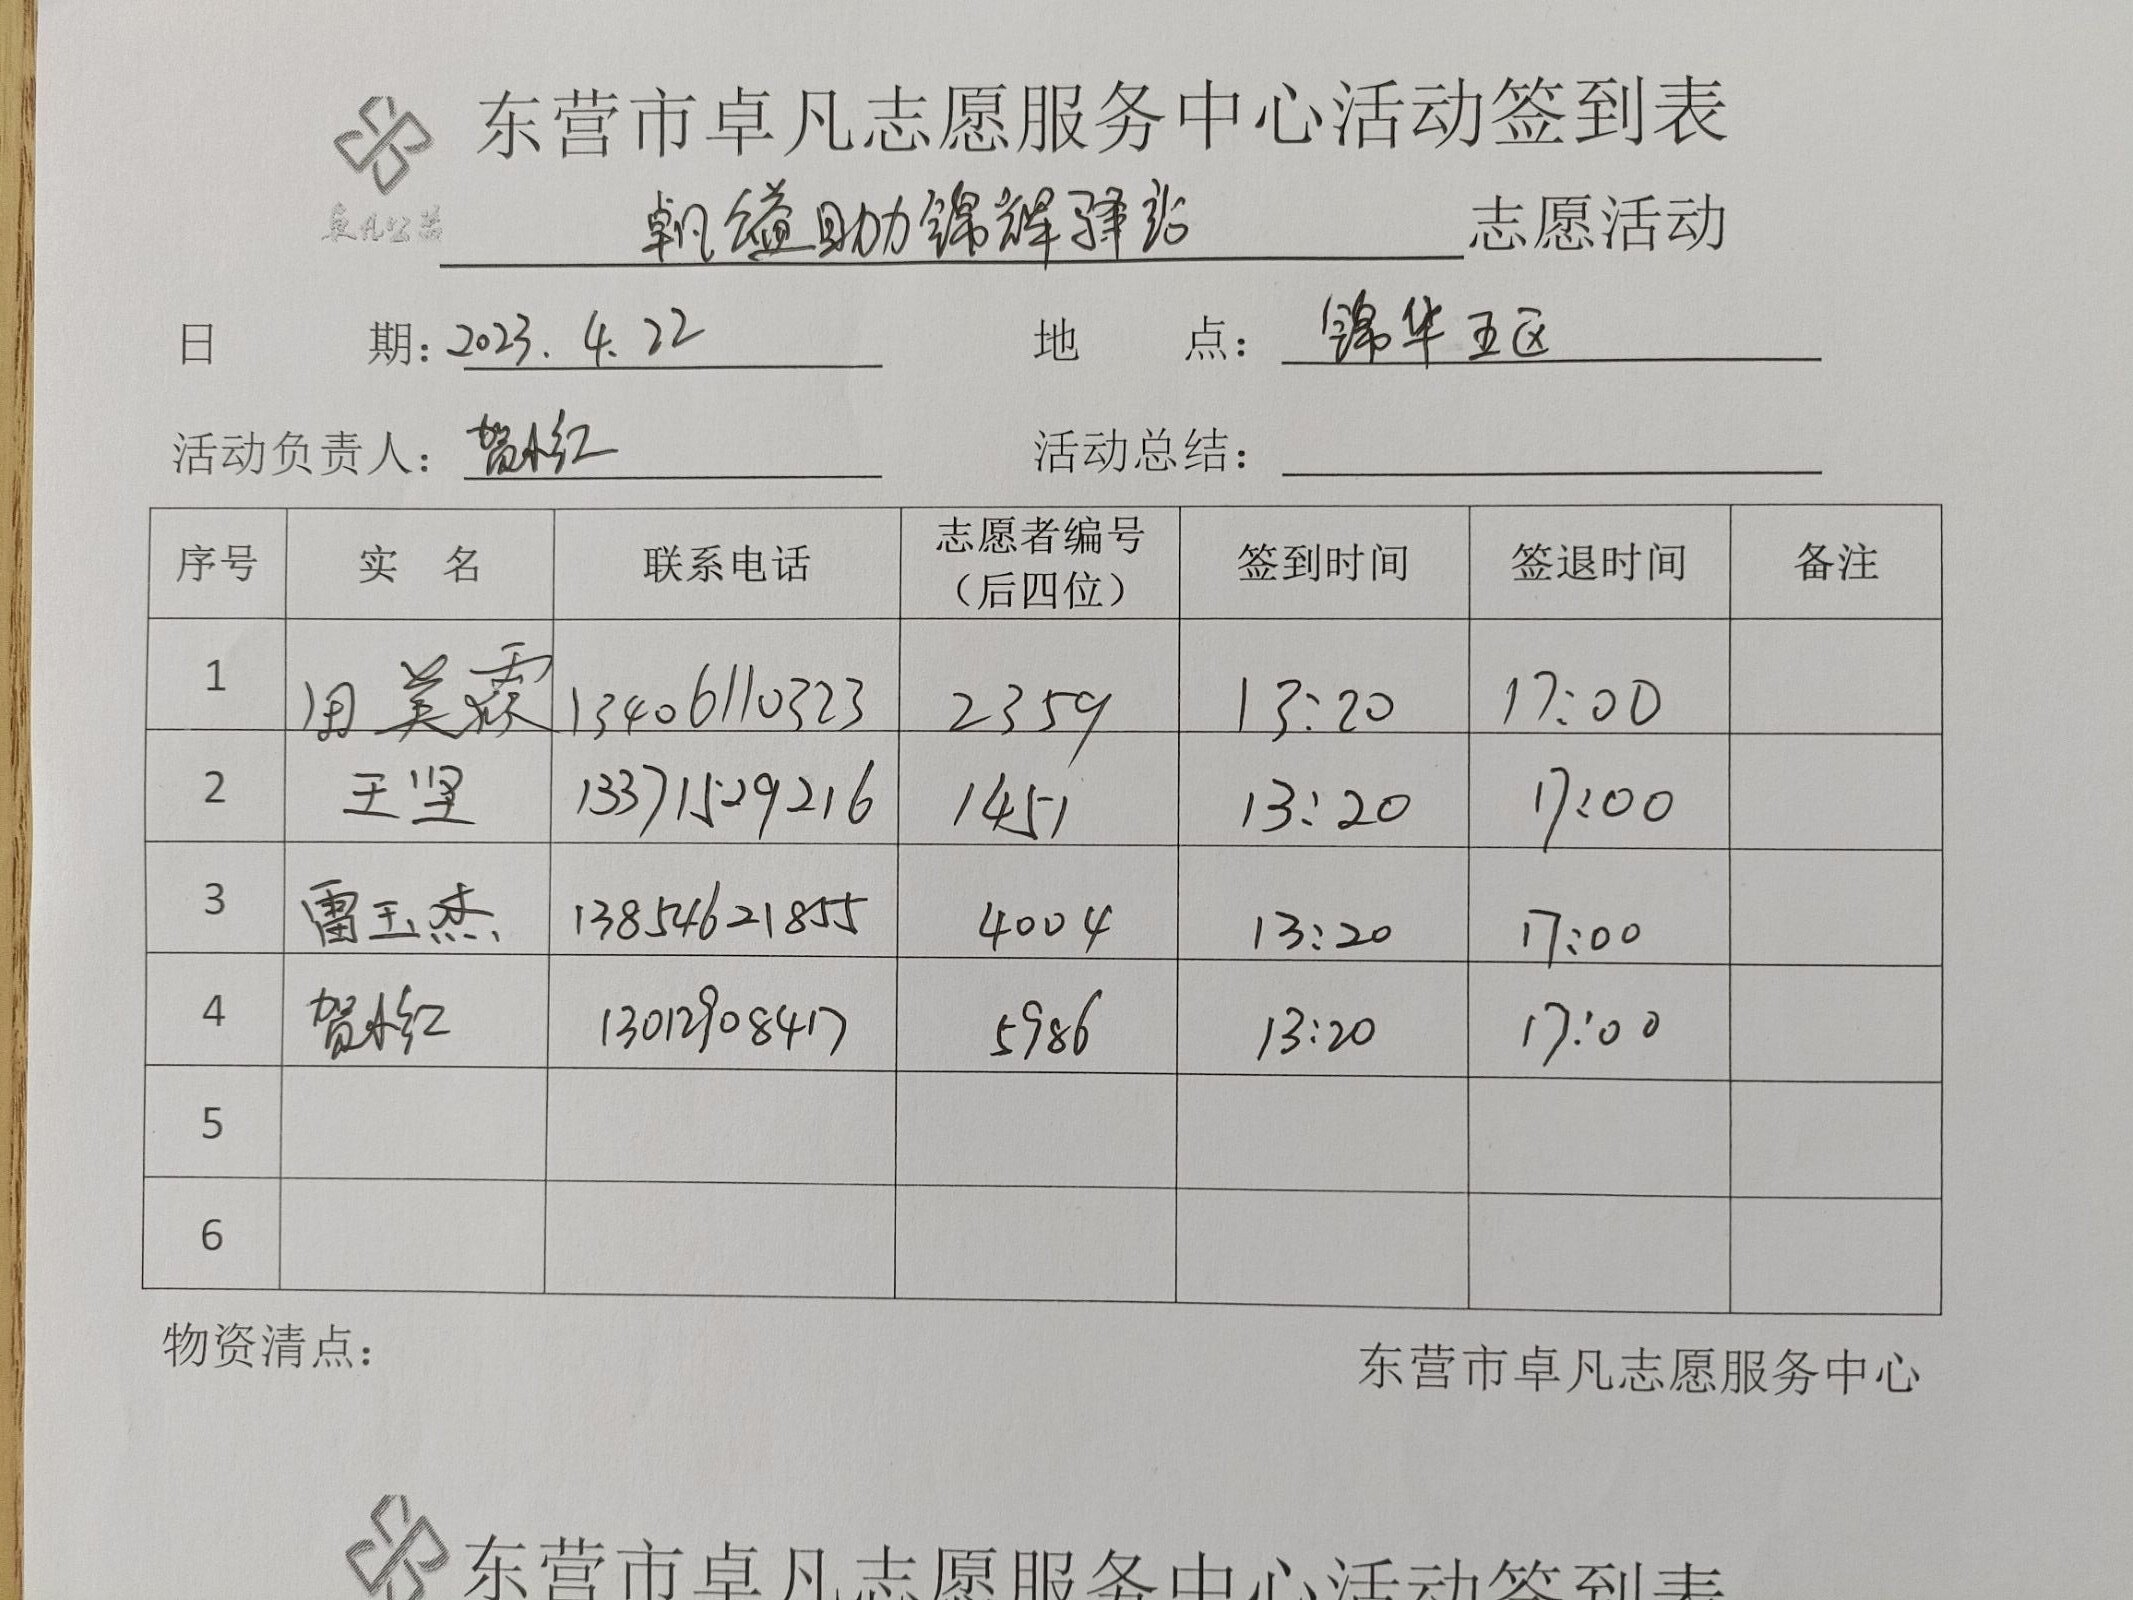 东营市卓凡志愿服务中心活动签到表
卓凡公益
卓凡公益助力锦辉驿站 志愿活动
日 期：2023.4.22 地 点：锦华五区
活动负责人：贺小红 活动总结：
序号 实 名 联系电话 志愿者编号（后四位） 签到时间 签退时间 备注
1 美霖 13406110323 2359 13:20 17:00
2 王坚 13371529216 1451 13:20 17:00
3 雷玉杰 13854621855 4004 13:20 17:00
4 贺小红 13012908417 5986 13:20 17:00
5
6
物资清点： 东营市卓凡志愿服务中心
东营市卓凡志愿服务中心活动签到表